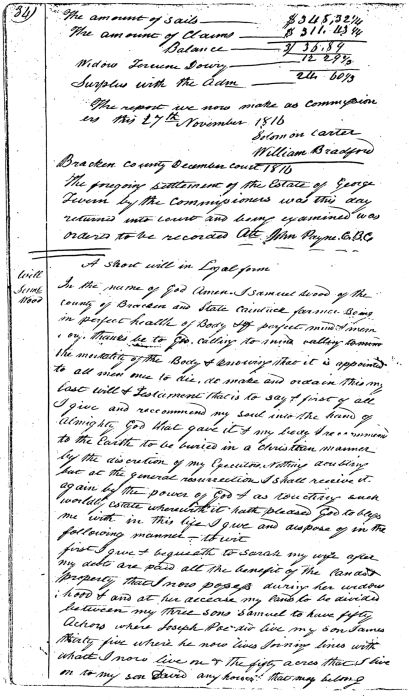 34)
The amount of sails $348,32¼
The amount of Claims $ 311.43¾
Balance 3) 36,89
Widow Dowry 12 29⅔
Surplus with the Adm 24 60⅓
The report we now make as commission
ers this 27th November 1816
Solomon Carter
William Bradford
Bracken County December court 1816
The foregoing settlement of the Estate of George
by the Commissioners was this day
returned into court and being examined was
ordered to be recorded Att John Payne C.B.C
A short will in Legal form
Will
Wood
In the name of God Amen. I Samuel Wood of the
county of Bracken and State farmer Being
in perfect health of Body & of perfect mind & mem
ory. thanks be to God, calling to mind
the mortality of the Body & knowing that it is appointed
to all men once to die, do make and ordain this my
last will & Testament that is to say & first of all
I give and reccommend my soul into the hand of
Almighty God that gave it & my body I recommend
to the Earth to be buried in a christian manner
by the discretion of my Executors Nothing doubting
but at the general resurrection I shall receive it
again by the power of God & as touching such
worldly estate wherewith it hath pleased God to bless
me with in this life I give and dispose of in the
following manner to wit
first I give & bequeath to Sarah my wife after
my debts are paid all the benefit of the Land &
property that I now posess during her widow
hood & and at her decease my Land to be divided
between my three sons Samuel to have fifty
Achors where Joseph did live my son James
thirty five where he now lives Joining lines with
whatt I now live on & the fifty acres that I live
on to my son David any however that may belong